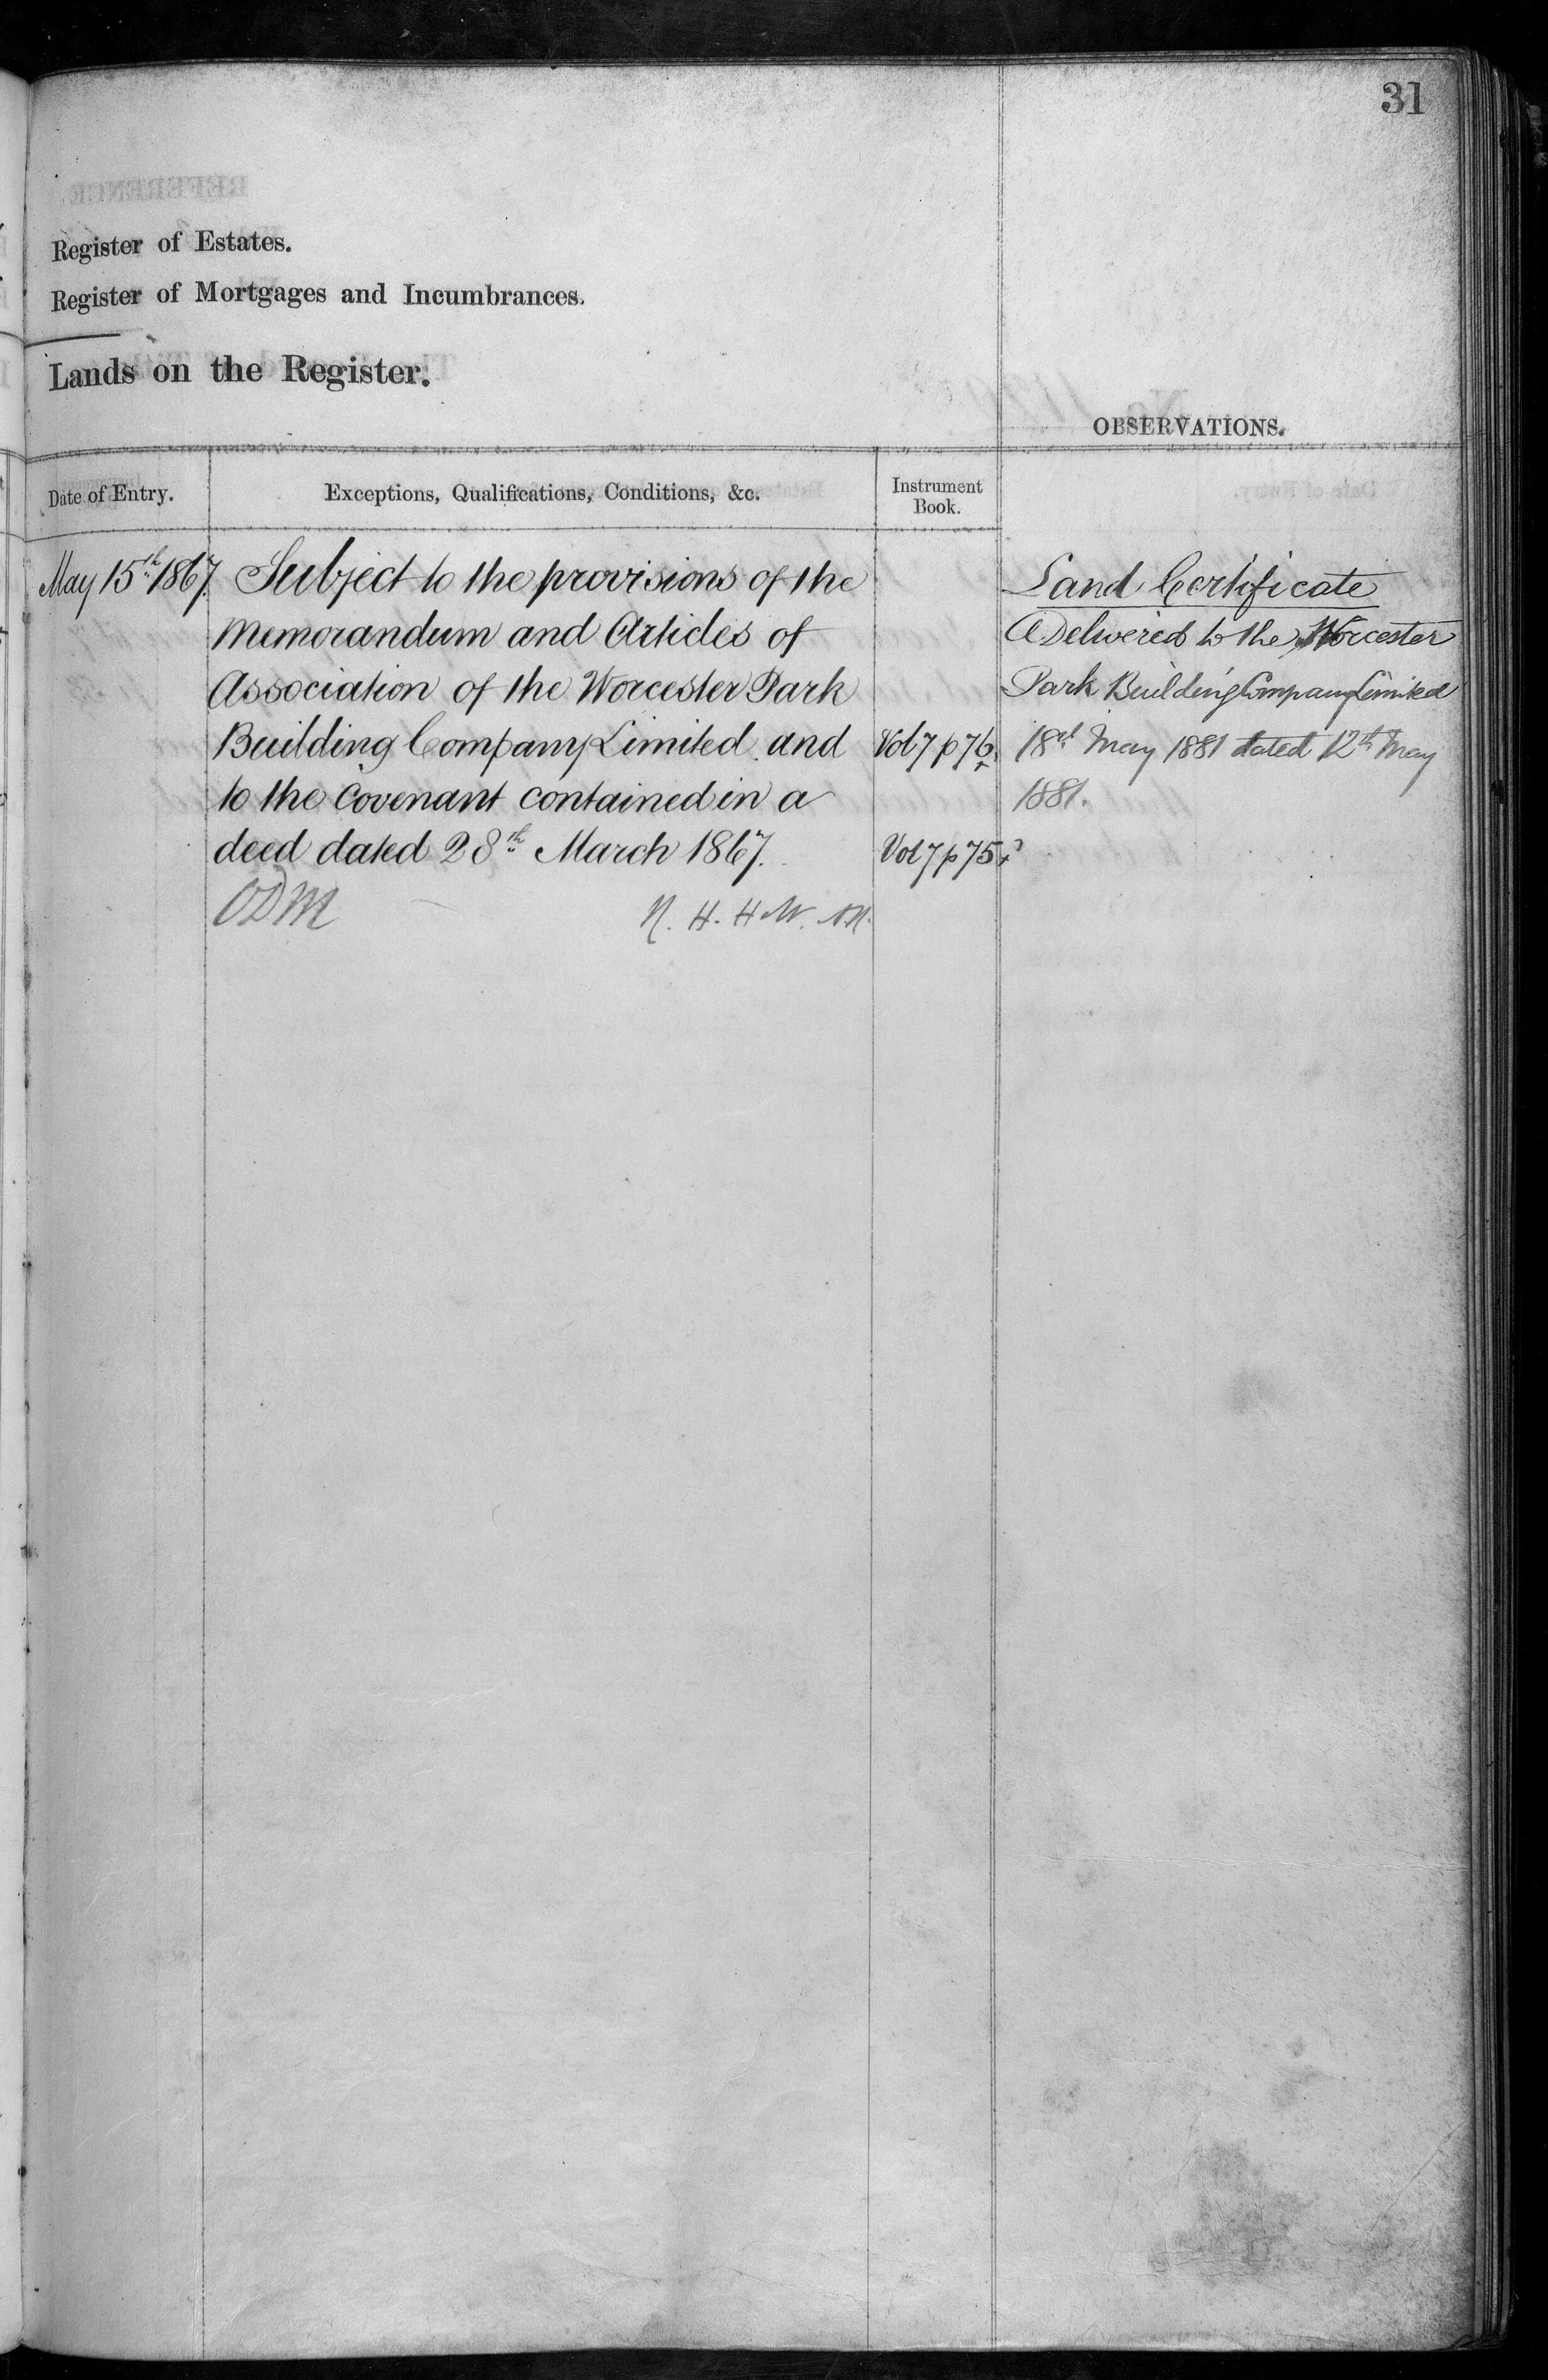 31
Register of Estates.
Register of Mortgages and Incumbrances.
Lands on the Register.
OBSERVATIONS.
Date of Entry.
Exceptions, Qualifications, Conditions, &c.
Instrument
Book.
May 15th 1867.
Subject to the provisions of the
Memorandum and Articles of
Association of the Worcester Park
Building Company Limited and
to the Covenant contained in a
deed dated 28th March 1867.
ODM
N. H. H.
Vol 7 p 76
Vol 7 p 75
Land Certificate
Delivered to the Worcester
Park Building Company Limited
18th May 1881 dated 12th May
1881.